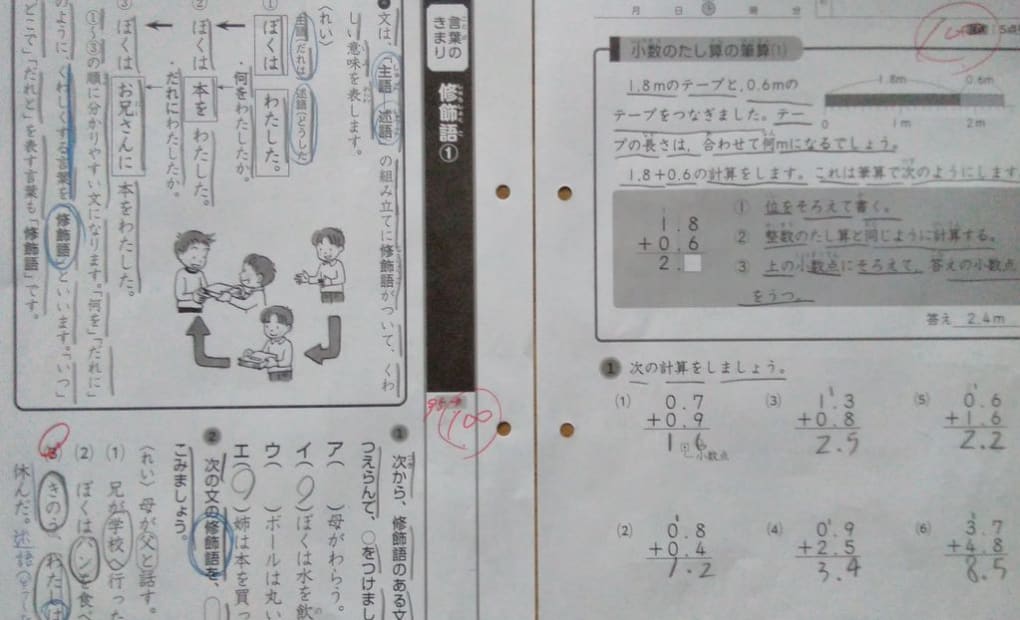 言葉の
きまり
修飾語①
文は、「主語 述語」の組み立てに修飾語がついて、くわ
しい意味を表します。
〈れい〉
主語（だれは） 述語（どうした）
① ぼくは わたした。
・何をわたしたか。
② ぼくは 本を わたした。
・だれにわたしたか。
③ ぼくは お兄さんに 本をわたした。
①〜③の順に分かりやすい文になります。「何を」「だれに」
のように、くわしくする言葉を「修飾語」といいます。「いつ」
「どこで」「だれと」を表す言葉も「修飾語」です。
95→
100
1 次から、修飾語のある文
つえらんで、○をつけまし
ア（ ）母がわらう。
イ（○）ぼくは水を飲
ウ（ ）ボールは丸い
エ（○）姉は本を買っ
2 次の文の修飾語を、
こみましょう。
〈れい〉母が父と話す。
(1) 兄が学校へ行った
(2) ぼくはパンを食べ
(3) きのう、わたしは
休んだ。述語
月 日 時 分
100
5点
小数のたし算の筆算(1)
1.8mのテープと、0.6mの
テープをつなぎました。テー
プの長さは、合わせて何mになるでしょう。
1.8m 0.6m
0 1m 2m
1.8+0.6の計算をします。これは筆算で次のようにします
1.8
+0.6
2.
① 位をそろえて書く。
② 整数のたし算と同じように計算する。
③ 上の小数点にそろえて、答えの小数点
をうつ。
答え 2.4m
1 次の計算をしましょう。
(1) 0.7
+0.9
1.6
小数点
(3) 1.3
+0.8
2.5
(5) 0.6
+1.6
2.2
(2) 0.8
+0.4
1.2
(4) 0.9
+2.5
3.4
(6) 3.7
+4.8
8.5